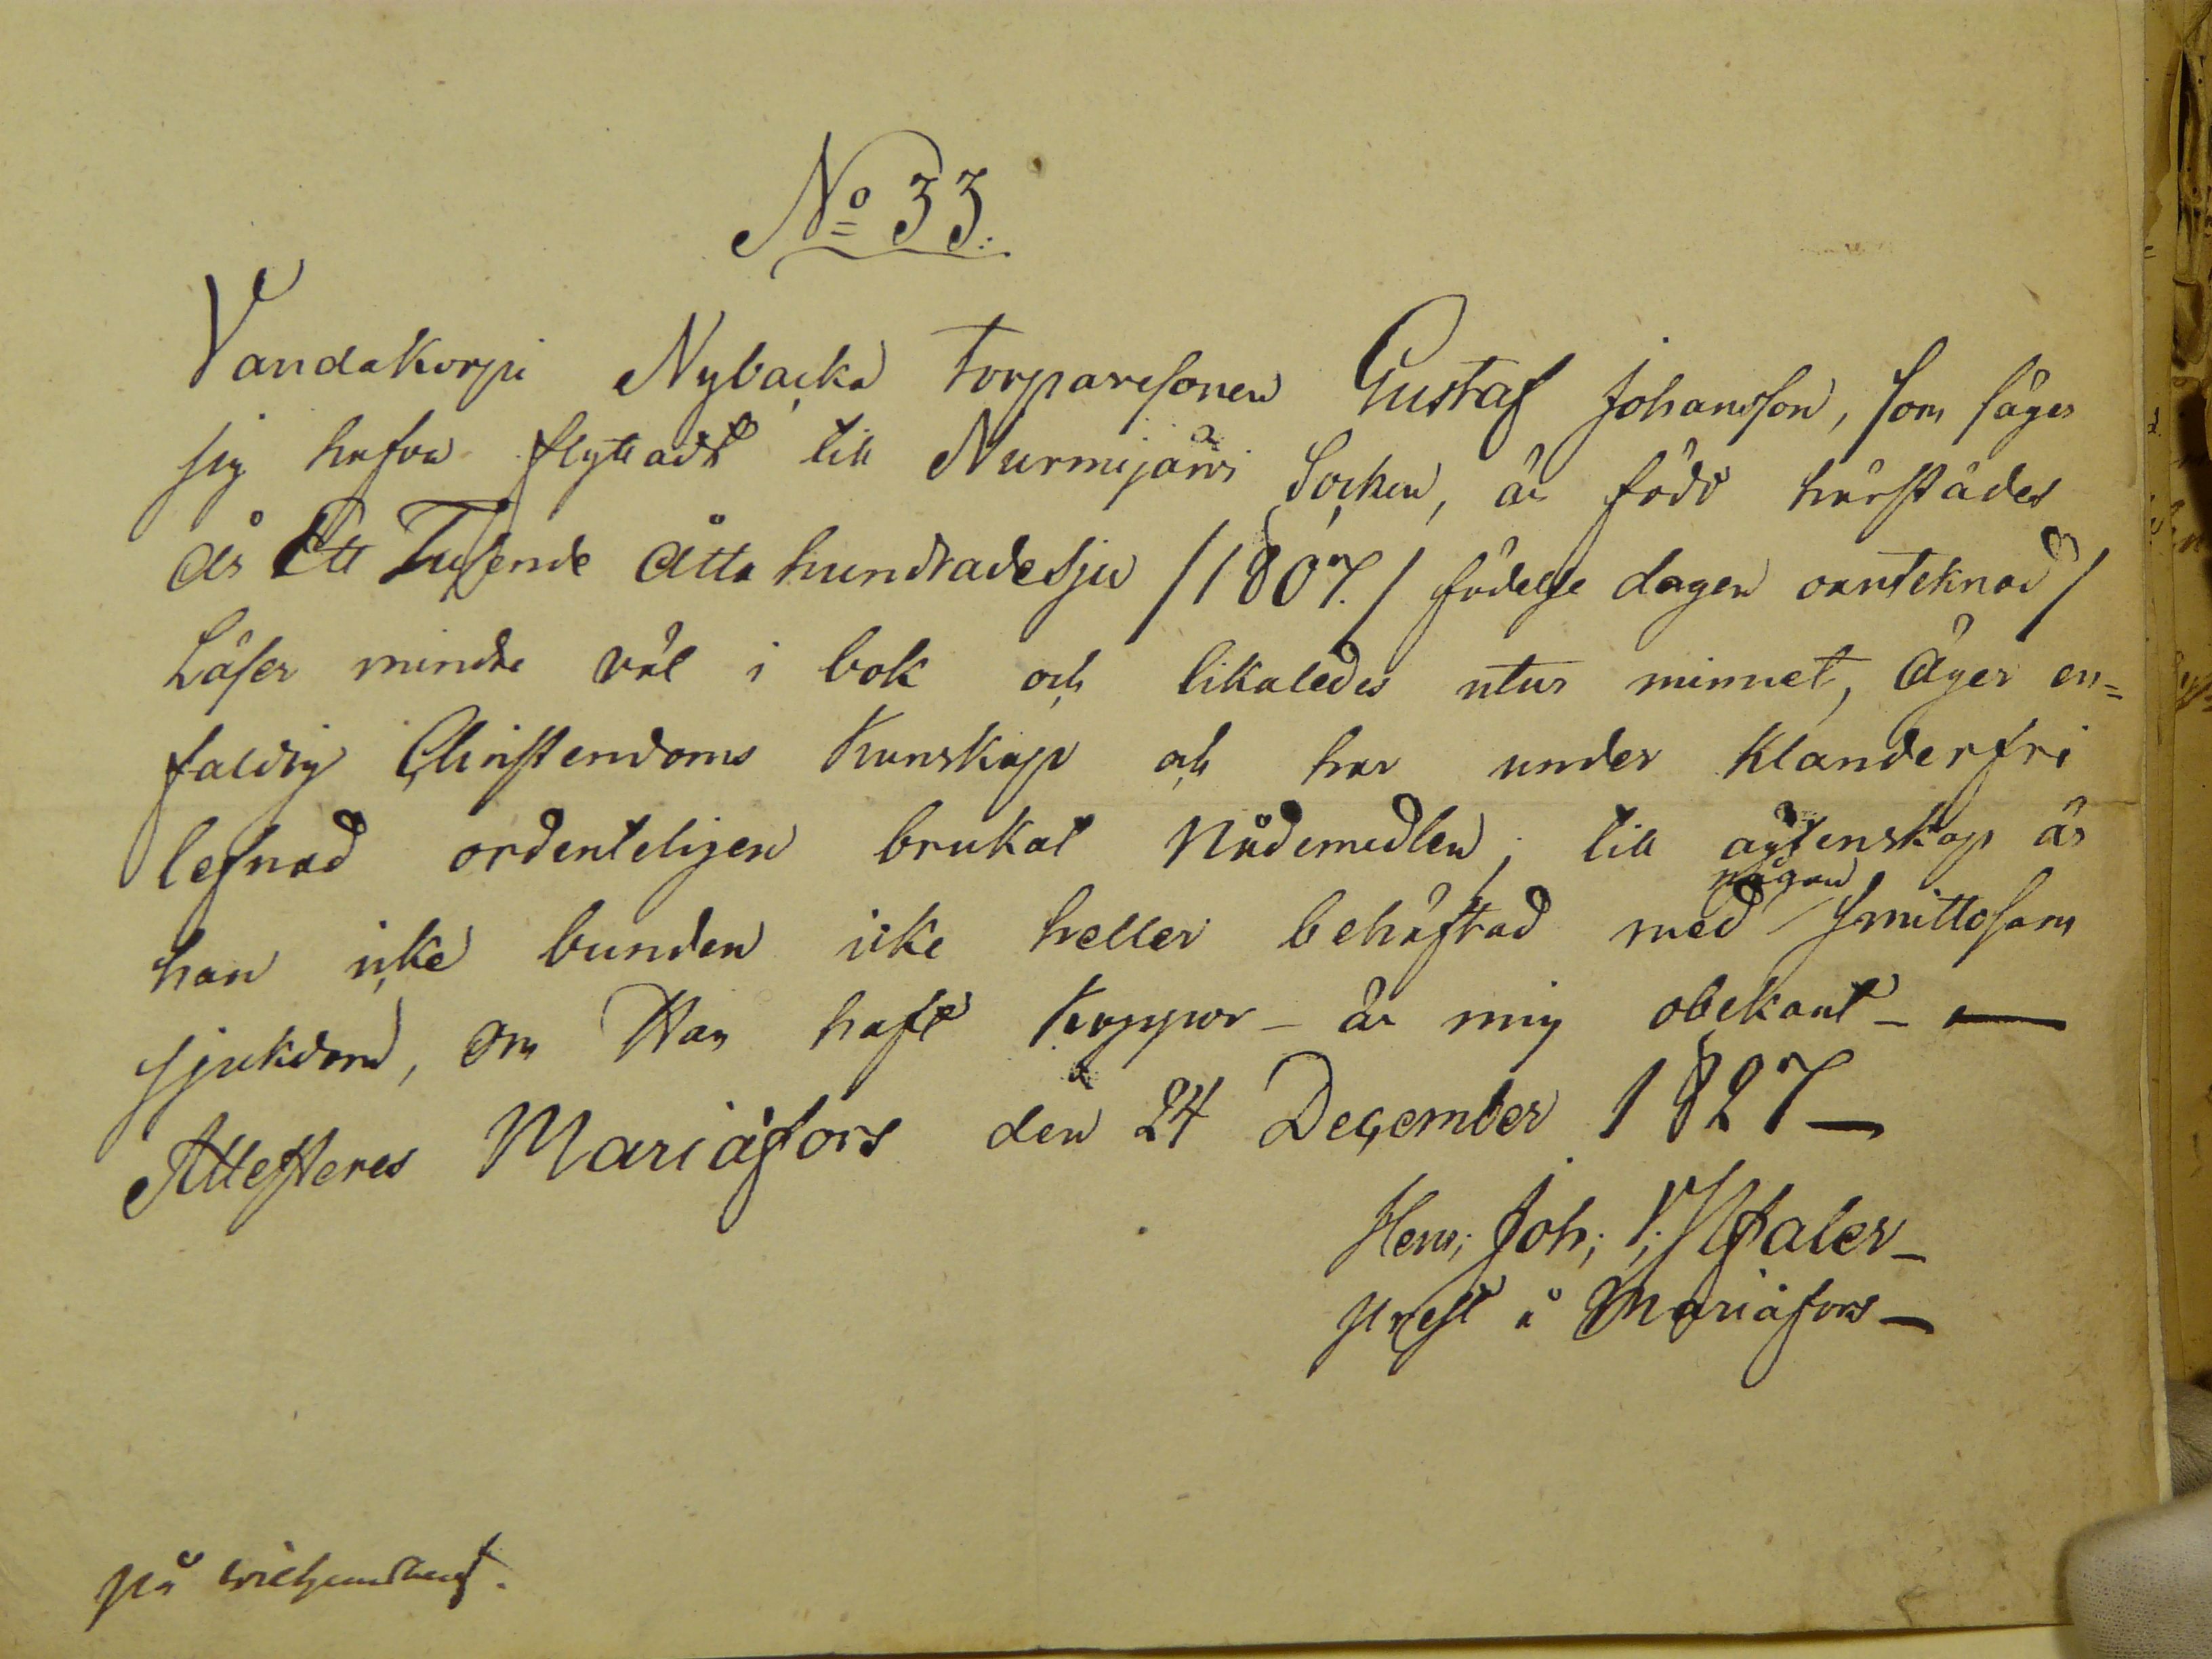 No 33.
Vandakorpi Nybacka Torparesonen Gustaf Johansson, som säges
sig hafva flyttadt till Nurmijärvi Socken, är född härstädes
år Ett Tusende Åtta hundradesju /1807./ födelse dagen oanteknad/
Läser mindre väl i bok och likaledes utur minnet, Äger en=
faldig Christendoms Kunskap och har under Klanderfri
lefnad ordenteligen brukat Nådemedlen; till äktenskap är
någon
han icke bunden icke heller behäftad med smittosam
sjukdom, om Han haft Koppor – är mig obekant –
Attesteres Mariäfors den 24 December 1827 –
Henr; Joh; Käler –
prest å Mariäfors –
på